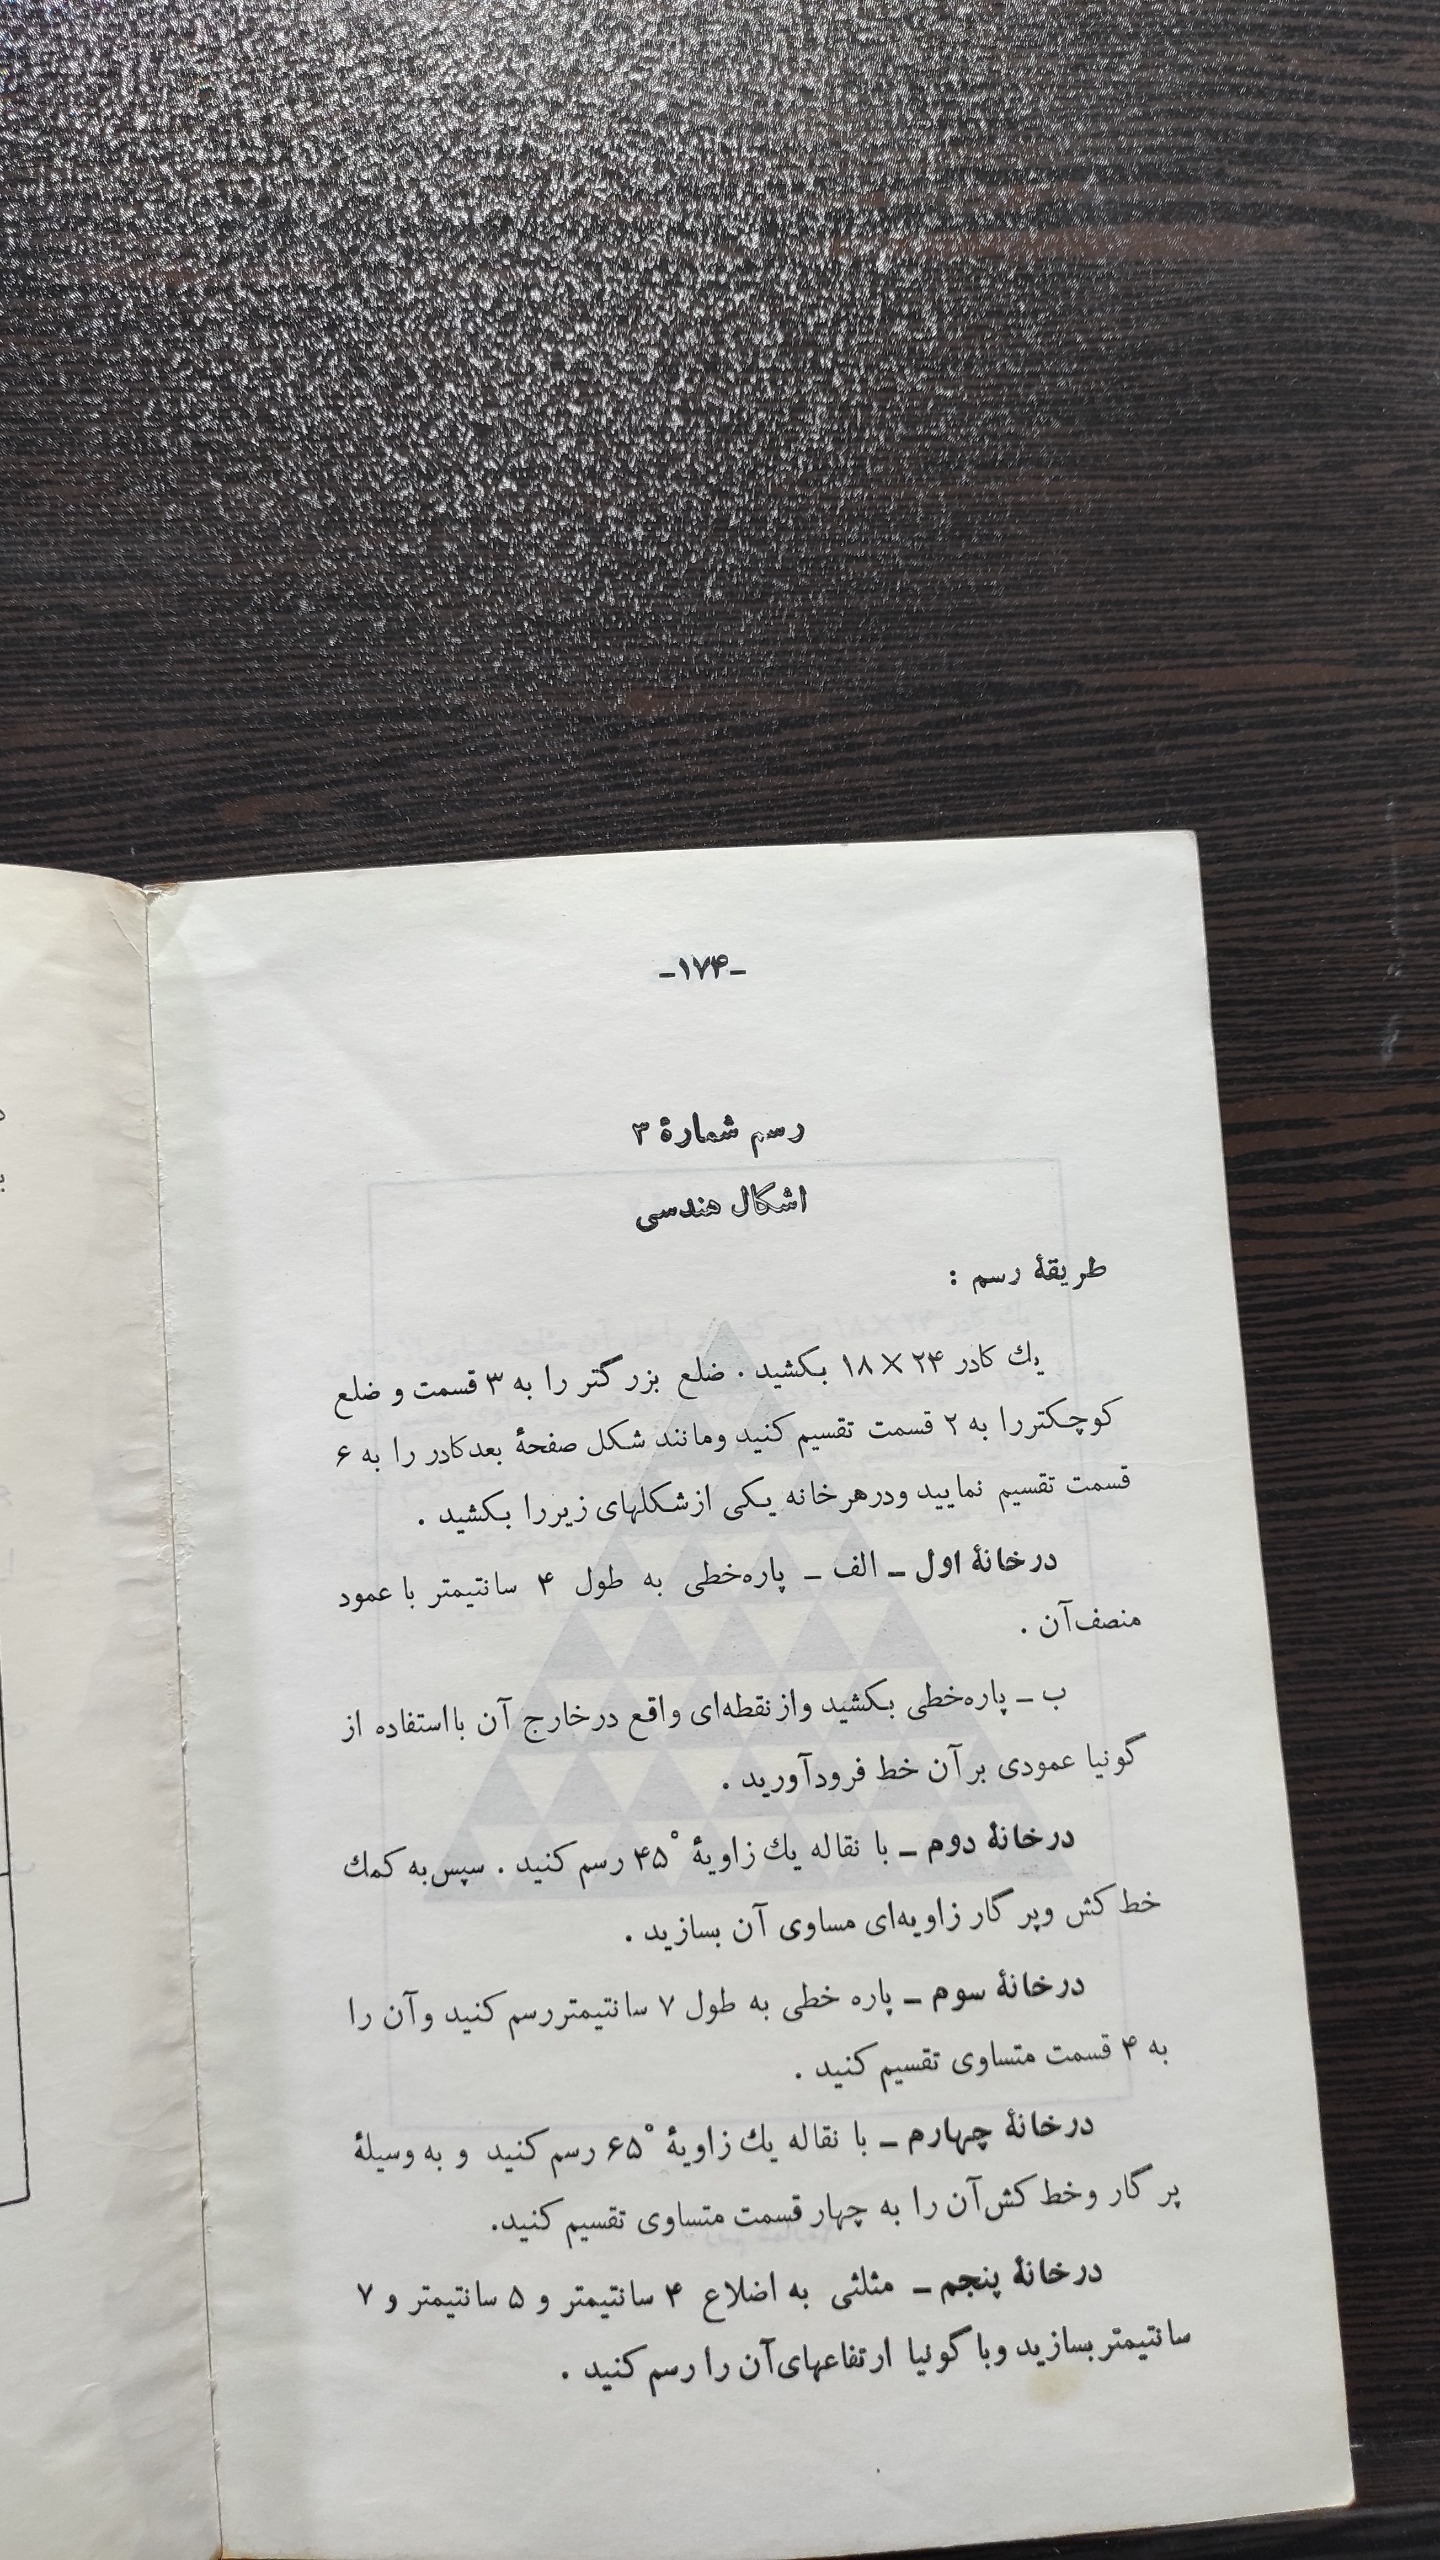 -۱۷۴-
رسم شمارهٔ ۳
اشکال هندسی
طریقهٔ رسم :
یك کادر ۲۴ × ۱۸ بکشید . ضلع بزرگتر را به ۳ قسمت و ضلع
کوچکتر را به ۲ قسمت تقسیم کنید ومانند شکل صفحهٔ بعد کادر را به ۶
قسمت تقسیم نمایید ودرهر خانه یکی از شکلهای زیر را بکشید .
درخانهٔ اول ـ الف ـ پاره‌خطی به طول ۴ سانتیمتر با عمود
منصف‌آن .
ب ـ پاره‌خطی بکشید واز نقطه‌ای واقع در خارج آن بااستفاده از
گونیا عمودی بر آن خط فرودآورید .
درخانهٔ دوم ـ با نقاله یك زاویهٔ ۴۵° رسم کنید . سپس‌به کمك
خط کش وپر گار زاویه‌ای مساوی آن بسازید .
درخانهٔ سوم ـ پاره خطی به طول ۷ سانتیمتر رسم کنید وآن را
به ۴ قسمت متساوی تقسیم کنید .
درخانهٔ چهارم ـ با نقاله یك زاویهٔ ۶۵° رسم کنید و به وسیلهٔ
پر گار وخط کش‌آن را به چهار قسمت متساوی تقسیم کنید.
درخانهٔ پنجم ـ مثلثی به اضلاع ۴ سانتیمتر و ۵ سانتیمتر و ۷
سانتیمتر بسازید وبا گونیا ارتفاعهای‌آن را رسم کنید .